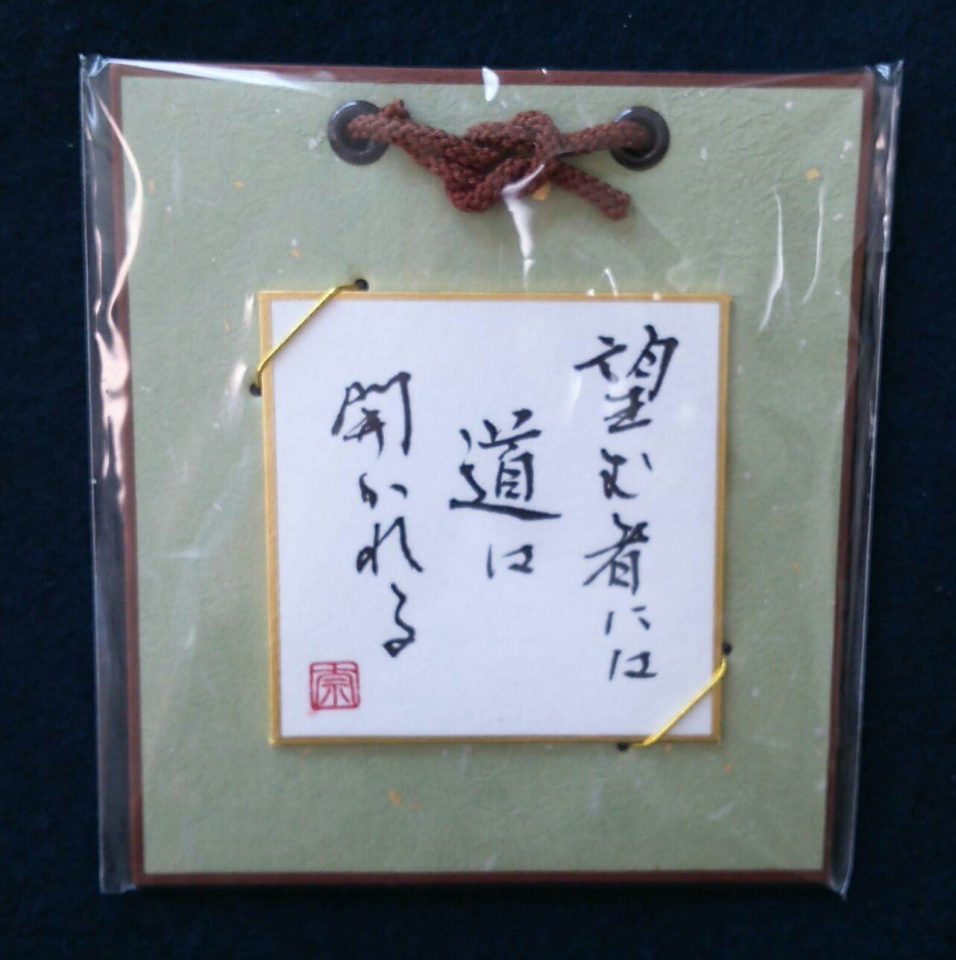 望む者には
道は
開かれる
崇